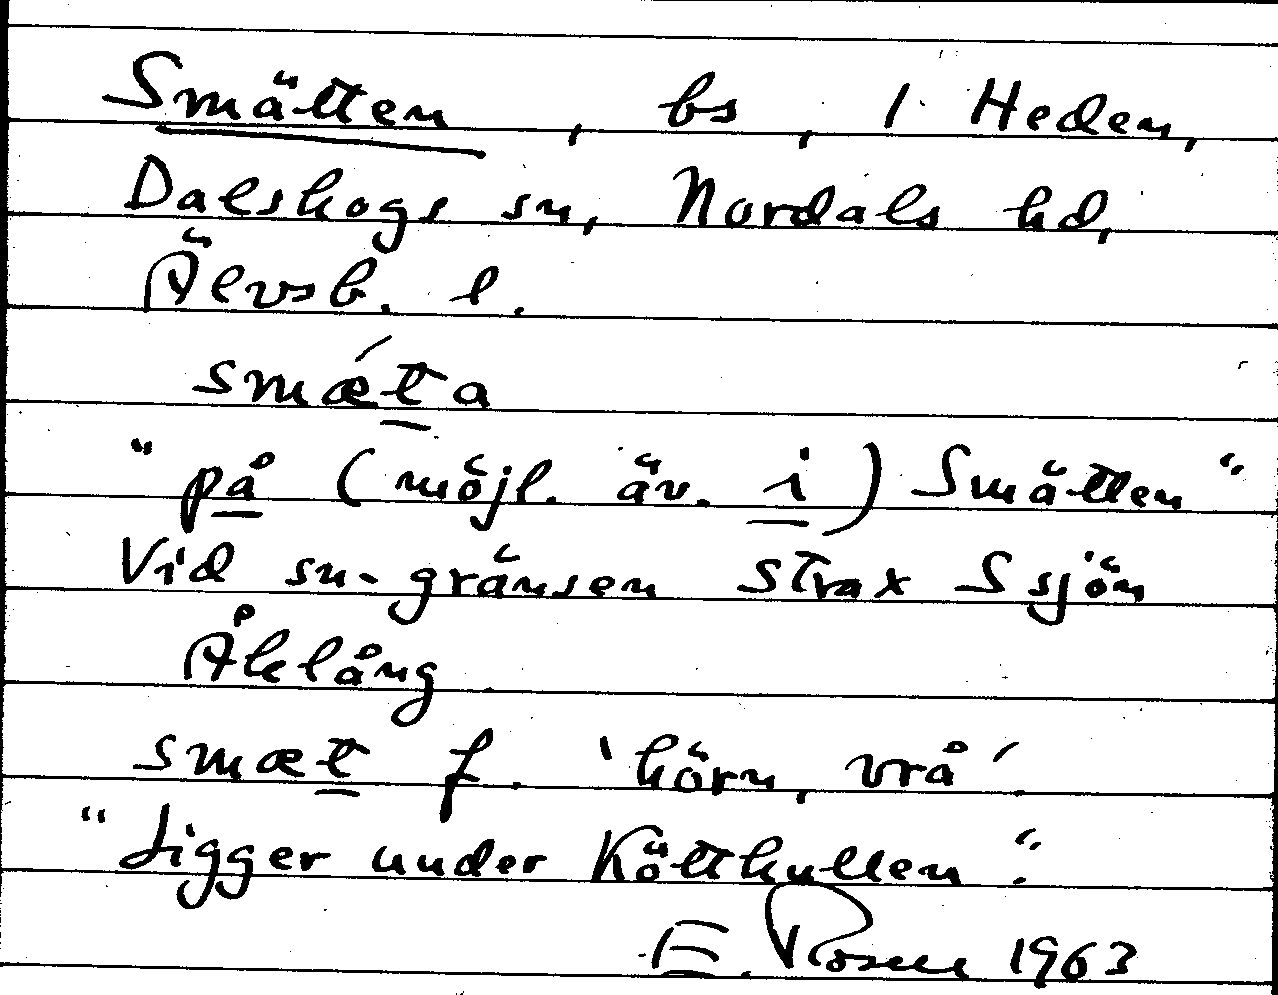 Smätten, bs, 1 Heden,
Dalskogs sn, Nordals hd,
Älvsb. l.
smǽt̲a
"på (möjl. äv. i) Smätten"
Vid sn-gränsen strax S sjön
Åklång
smæt̲ f. 'hörn, vrå'.
"Ligger under Kötthullen".
E. Rosell 1963